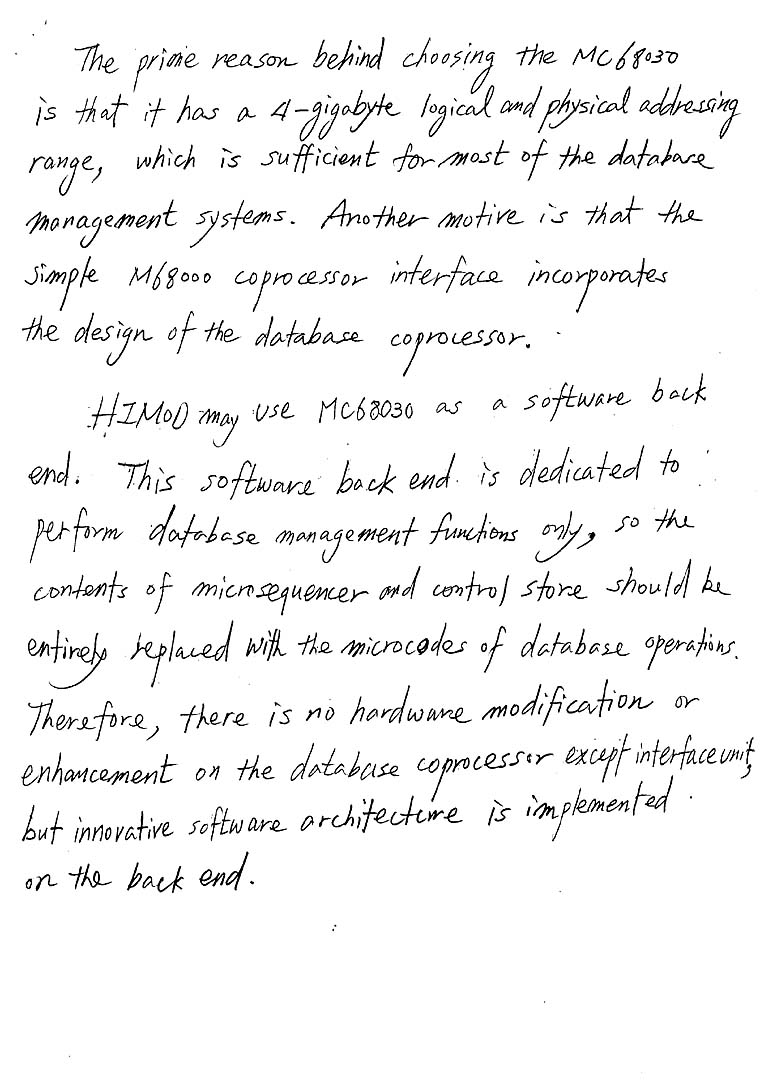 The prime reason behind choosing the MC68030
is that it has a 4-gigabyte logical and physical addressing
range, which is sufficient for most of the database
management systems. Another motive is that the
simple M68000 coprocessor interface incorporates
the design of the database coprocessor.
HIMOD may use MC68030 as a software back
end. This software back end is dedicated to
perform database management functions only, so the
contents of microsequencer and control store should be
entirely replaced with the microcodes of database operations.
Therefore, there is no hardware modification or
enhancement on the database coprocessor except interface unit,
but innovative software architecture is implemented
on the back end.